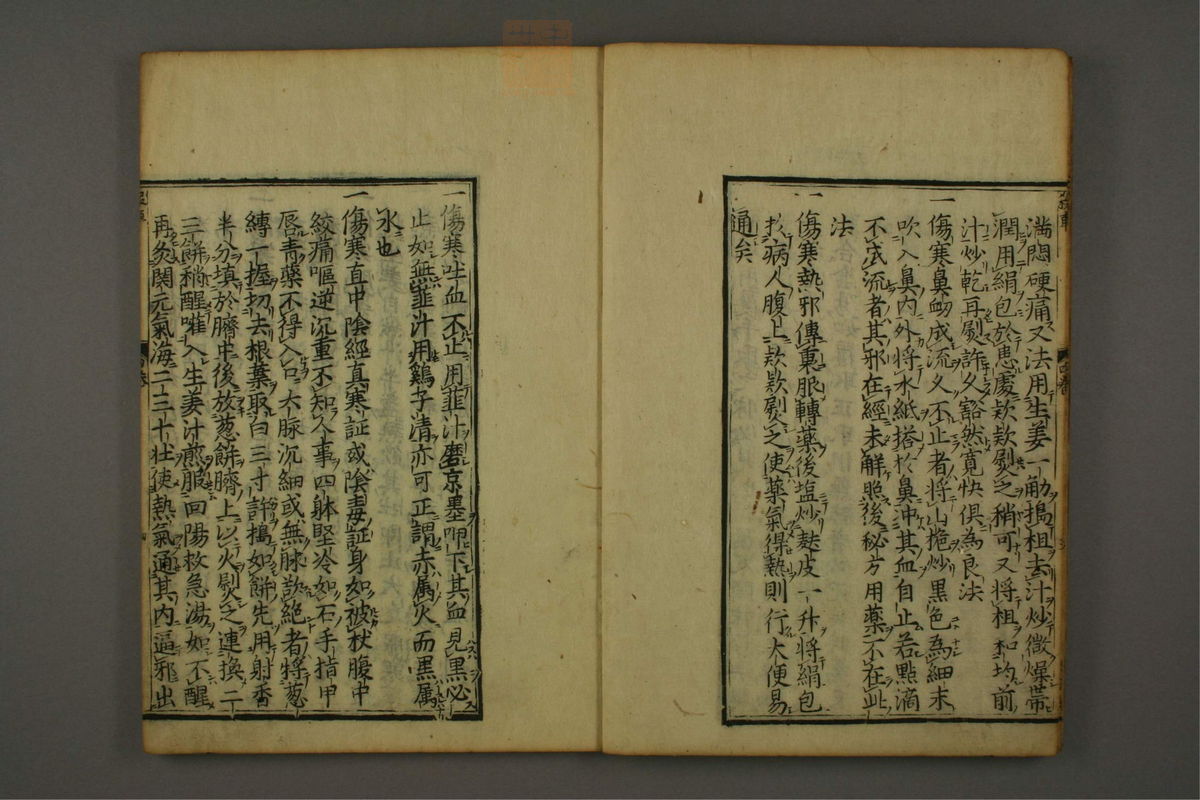 滿悶硬痛又法用生姜一觔搗柤去汁炒微燥帶
潤用絹包於患處欵欵熨之稍可又將柤和均前
汁炒乾再熨許久豁然寬快俱為良法
一傷寒鼻衂成流久不止者將山梔炒黒色為細末
吹入鼻內外將水紙搭於鼻冲其血自止若點滴
不成流者其邪在經未觧照後秘方用藥不在此
法
一傷寒熱邪傳裏服轉藥後塩炒麩皮一升將絹包
於病人腹上欵欵熨之使藥氣得熱則行大便易
通矣
一傷寒吐血不止用韮汁磨京墨呷下其血見黒必
止如無韮汁用鷄子清亦可正謂赤属火而黒属
水也
一傷寒直中陰經真寒証或陰毒証身如被杖腹中
絞痛嘔逆沉重不知人事四躰堅冷如石手指甲
唇青藥不得入口六脉沉細或無脉欲絕者將葱
縛一握切去根葉取白三寸許搗如餅先用射香
半分填於臍中後放葱餅臍上以火熨之連換二
三餅稍醒嚾入生姜汁煎服回陽救急湯如不醒
再灸関元氣海二三十壮使熱氣通其內逼邪出